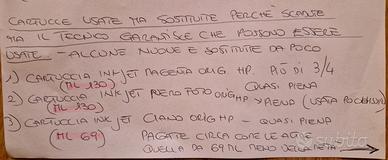 CARTUCCE USATE MA SOSTITUITE PERCHÈ SCARSE
MA IL TECNICO GARANTISCE CHE POSSONO ESSERE
USATE - ALCUNE NUOVE E SOSTITUITE DA POCO
1) CARTUCCIA INKJET MAGENTA ORIG HP. PIÙ DI 3/4
(ML 130) QUASI PIENA
2) CARTUCCIA INK JET NERO FOTO ORIG HP > PIENA (USATA
(ML 130)
3) CARTUCCIA INK JET CIANO ORIG HP - QUASI PIENA
(ML 69) PAGATE CIRCA
QUELLA DA 69 ML MENO DELLA METÀ
subito